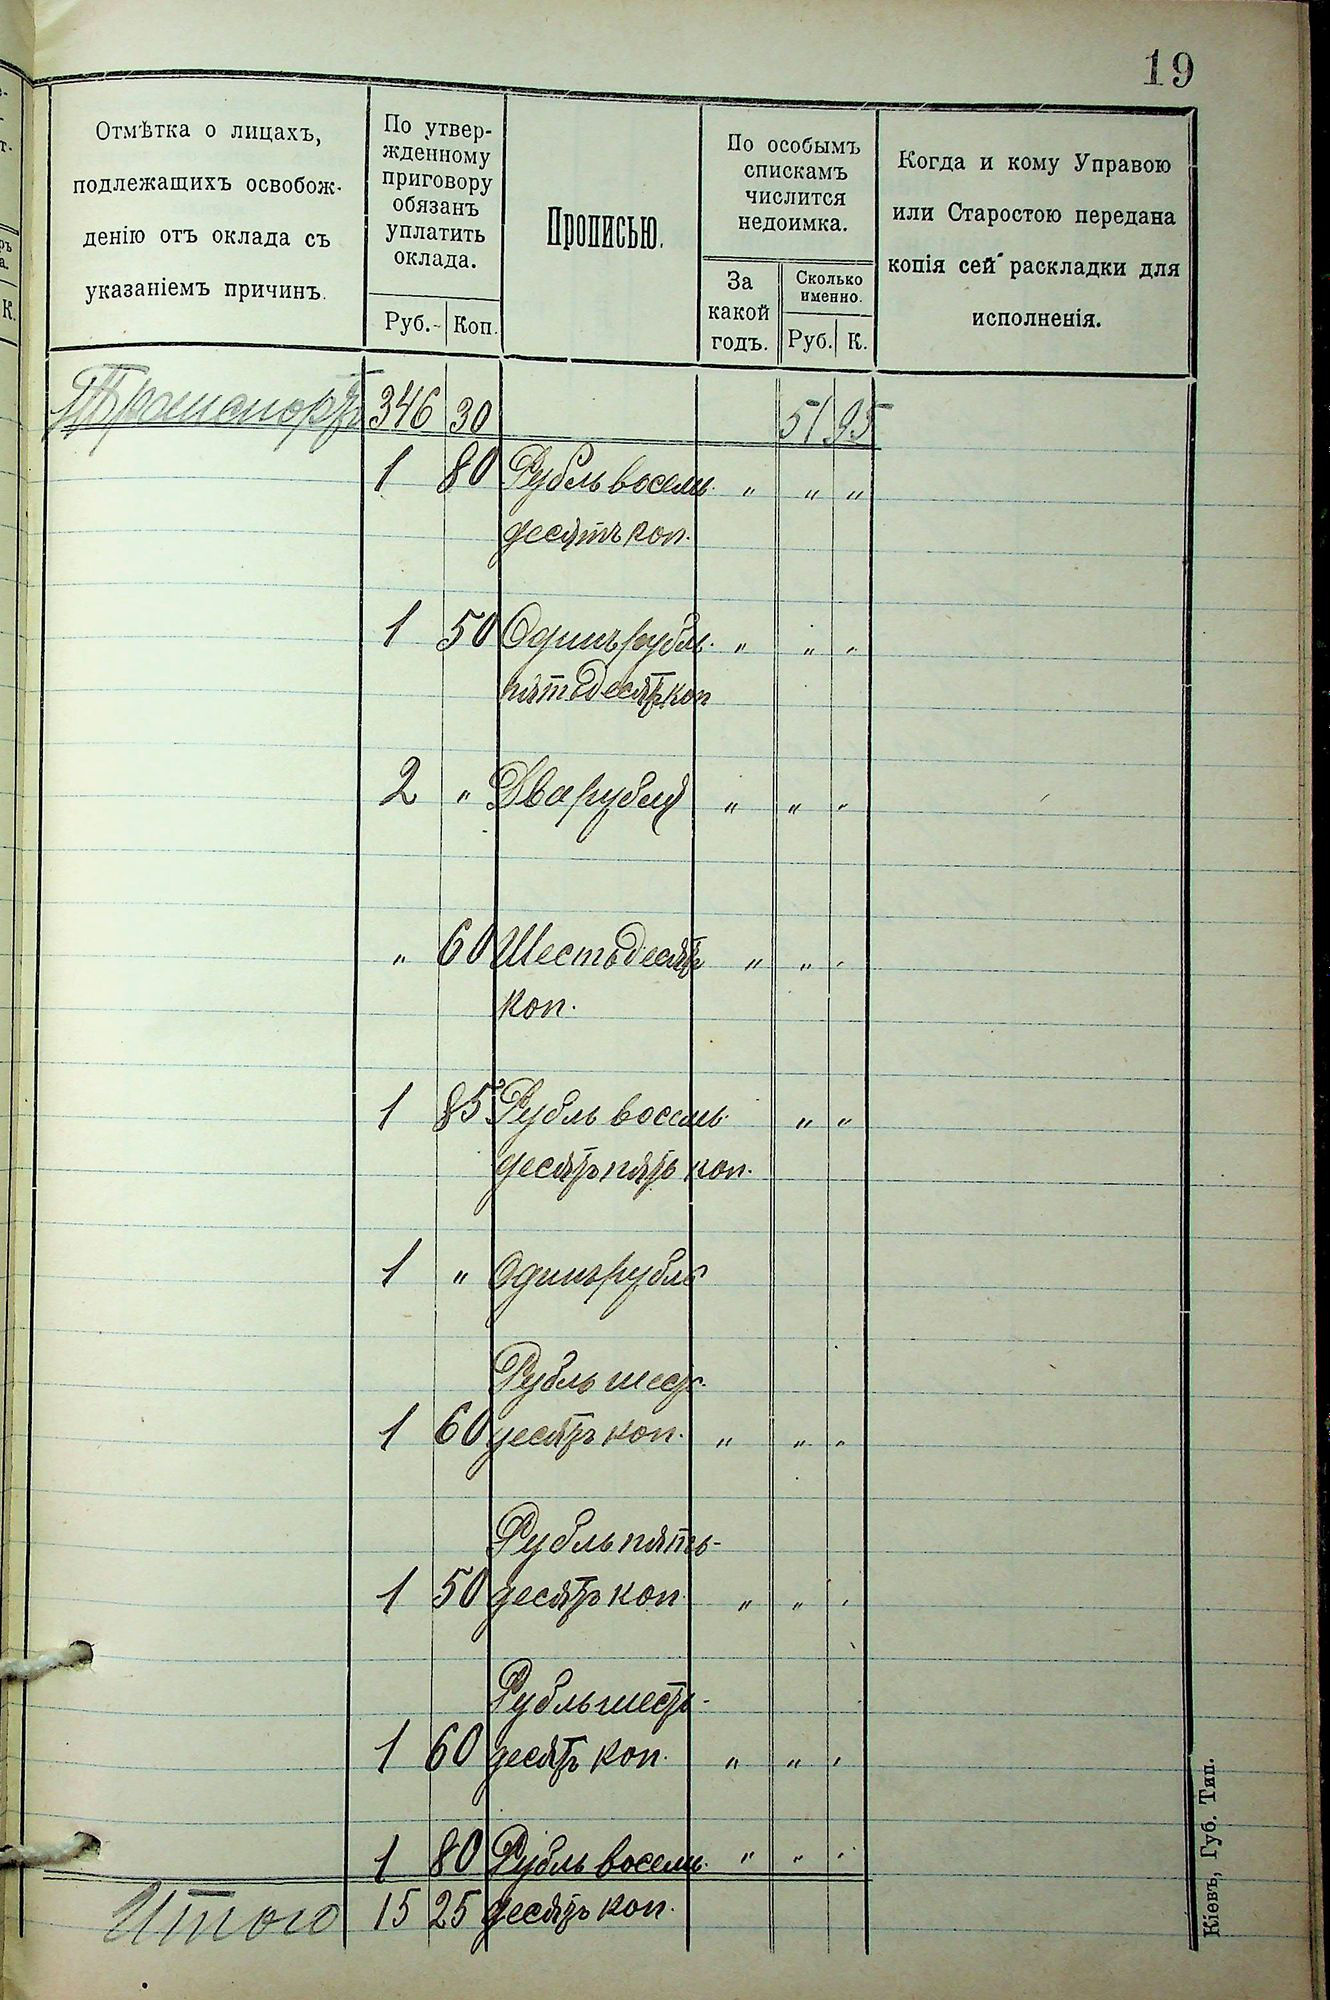 19
Отмѣтка о лицахъ,
подлежащихъ освобож-
денію отъ оклада съ
указаніемъ причинъ.
По утвер-
жденному
приговору
обязанъ
уплатить
оклада.
Руб. Коп.
Прописью.
По особымъ
спискамъ
числится
недоимка.
За
какой
годъ.
Сколько
именно.
Руб. К.
Когда и кому Управою
или Старостою передана
копія сей раскладки для
исполненія.
Транспортъ 346 30 51 95
1 80 Рубль восемь- " " "
десятъ коп.
1 50 Одинъ рубль " " "
пятьдесятъ коп
2 " Два рубля " " "
" 60 Шестьдесятъ " " "
коп.
1 85 Рубль восемь- " "
десятъ пять коп.
1 " Одинъ рубль
Рубль шесть-
1 60 десятъ коп. " " "
Рубль пять-
1 50 десятъ коп " " "
Рубль шесть-
1 60 десятъ коп. " " "
1 80 Рубль восемь- " " "
Итого 15 25 десятъ коп.
Кіевъ, Губ. Тип.